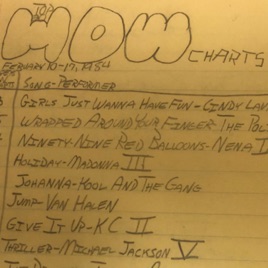 TOP
MOW
CHARTS
FEBUARY 10-17, 1984
SONG-PERFORMER
GIRLS JUST WANNA HAVE FUN-CINDY LAU
WRAPPED AROUND YOUR FINGER-THE POL
NINETY-NINE RED BALLOONS-NENA
HOLIDAY-MADONNA III
JOHANNA-KOOL AND THE GANG
JUMP-VAN HALEN
GIVE IT UP-KC II
THRILLER-MICHAEL JACKSON V